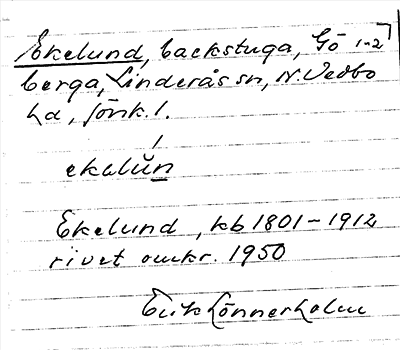 Ekelund, backstuga, Gö 1-2
berga, Linderås sn, N. Vedbo
hd, Jönk. l.
ekalŭn
Ekelund, kb 1801-1912
rivet omkr. 1950
Erik Lönnerholm